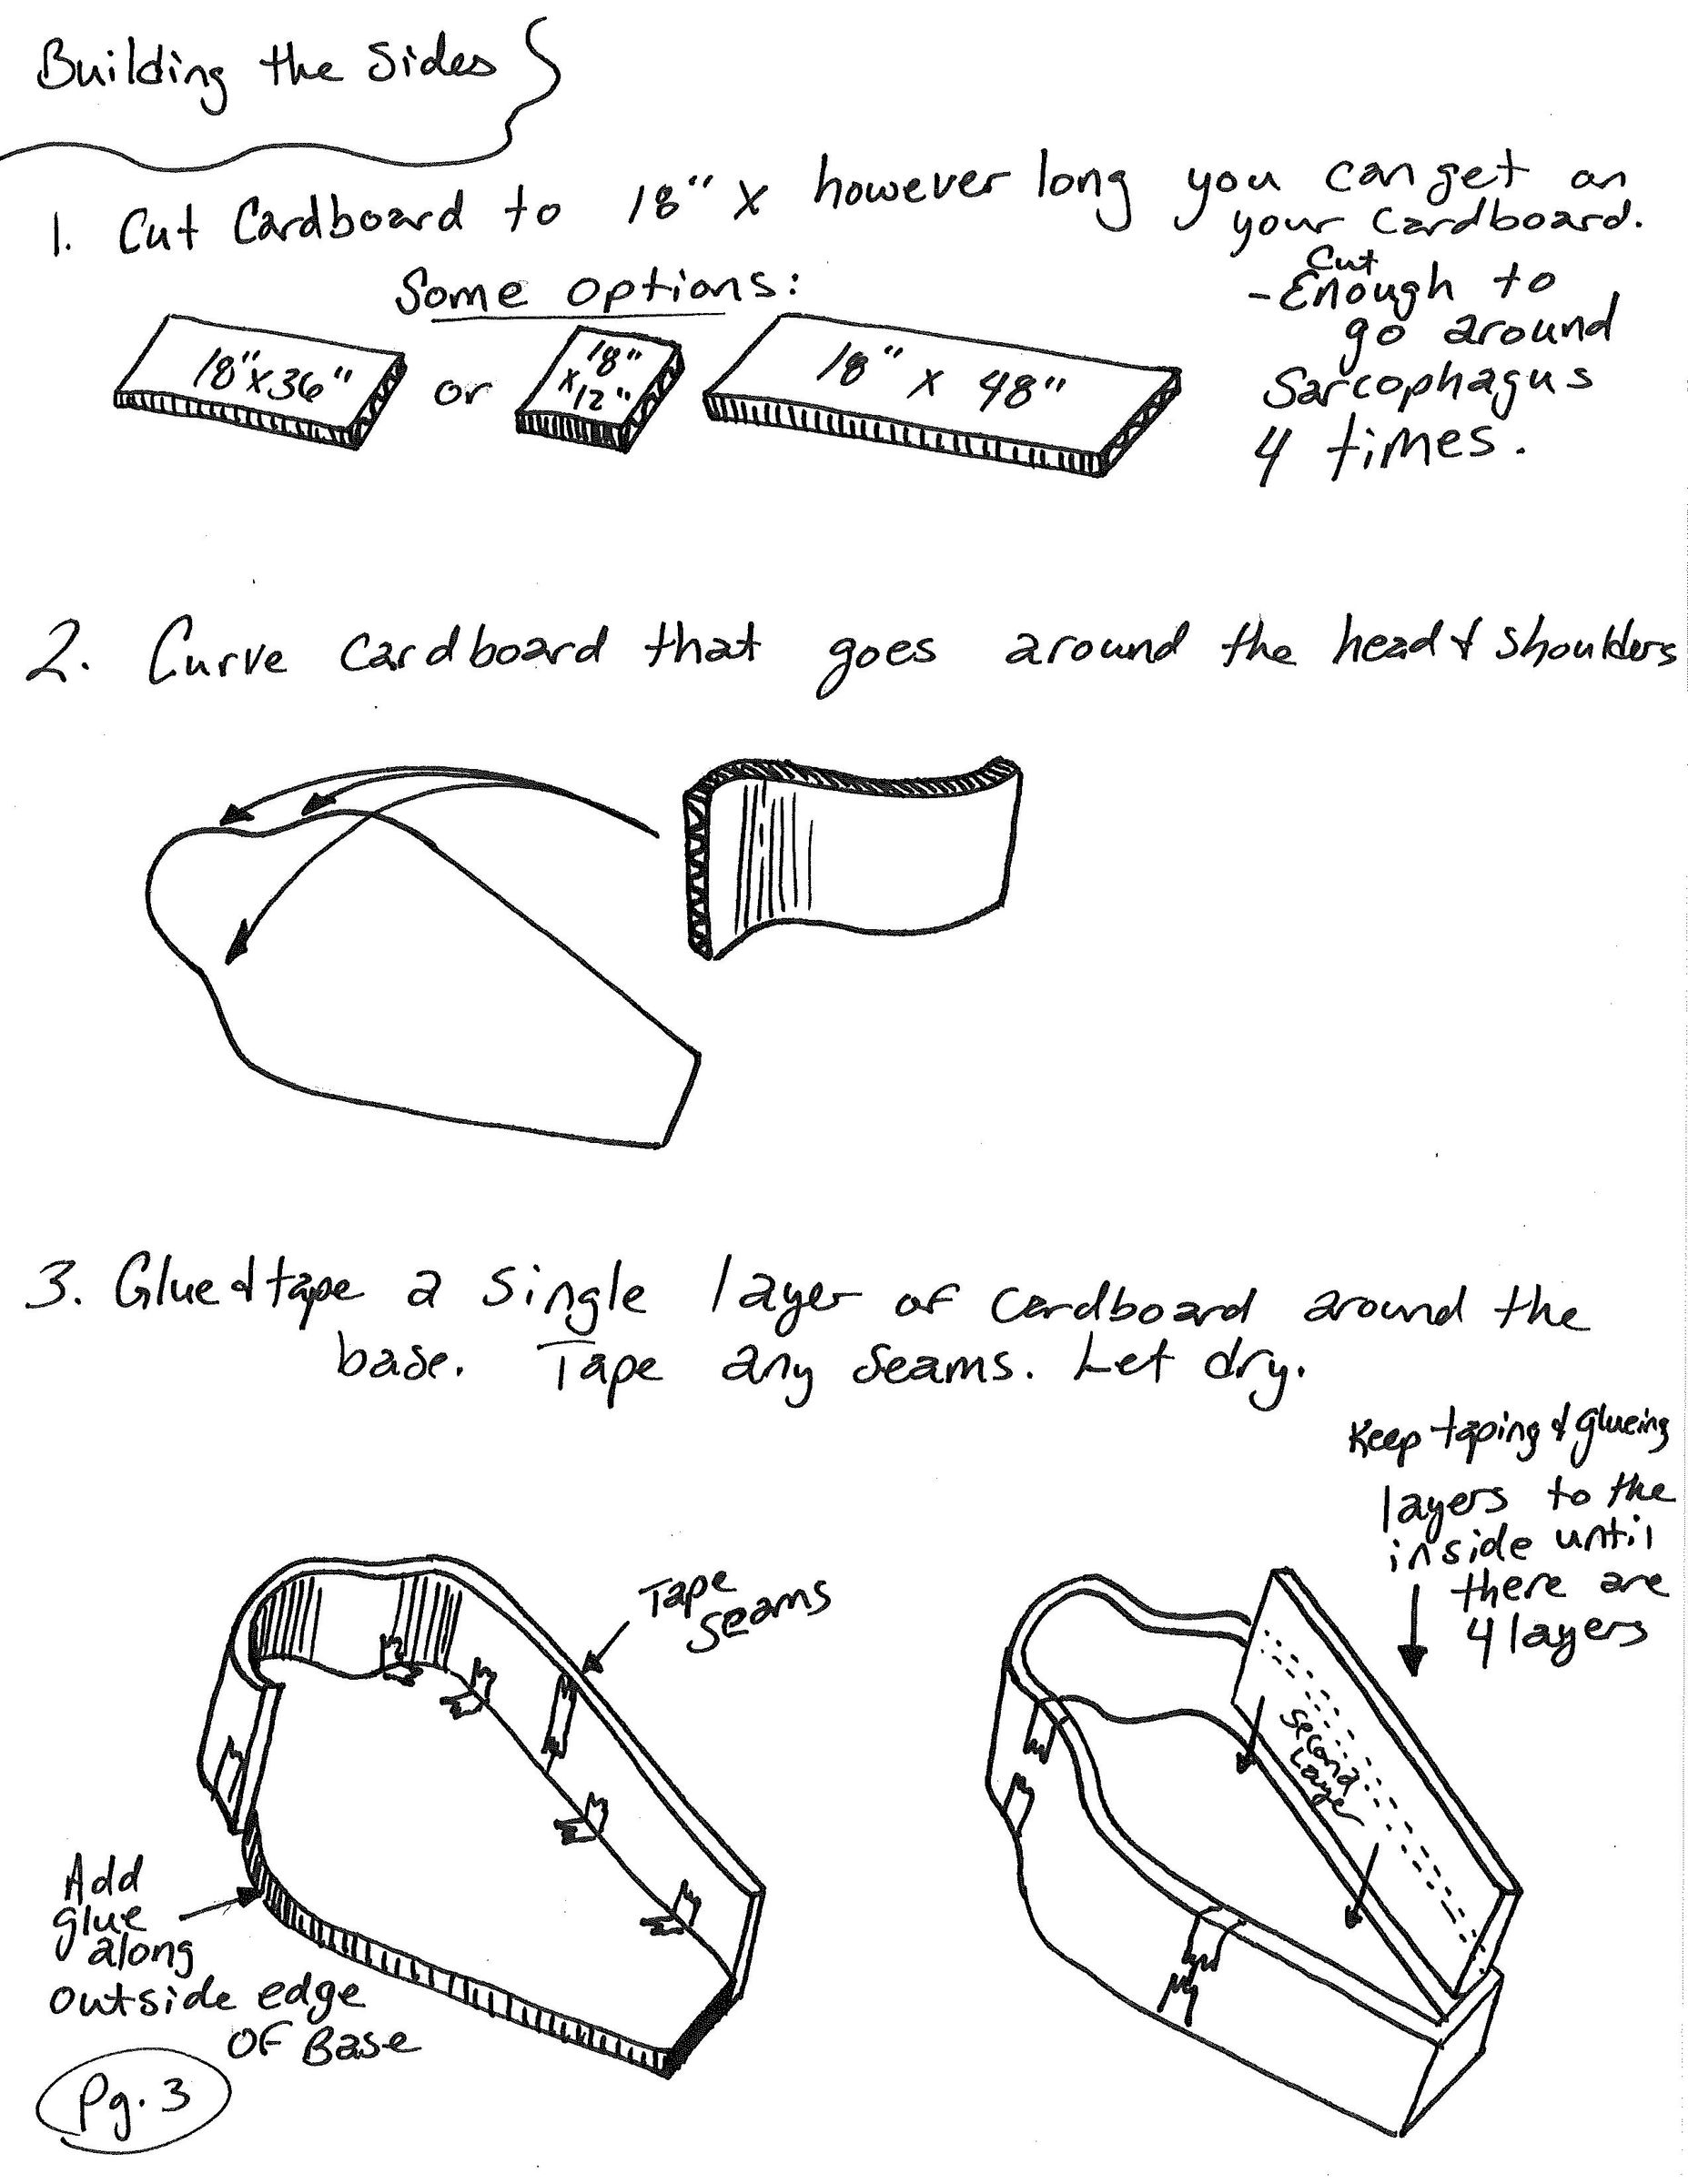 Building the Sides
1. Cut Cardboard to 18" x however long you can get on
your cardboard.
Some options:
- Cut Enough to
go around
Sarcophagus
4 times.
18" x 36"
or
18"
x 12"
18" x 48"
2. Curve cardboard that goes around the head & shoulders
3. Glue & tape a single layer of cardboard around the
base. Tape any seams. Let dry.
Keep taping & glueing
layers to the
inside until
there are
4 layers
Tape
seams
Second
Layer
Add
glue
along
outside edge
OF Base
Pg. 3